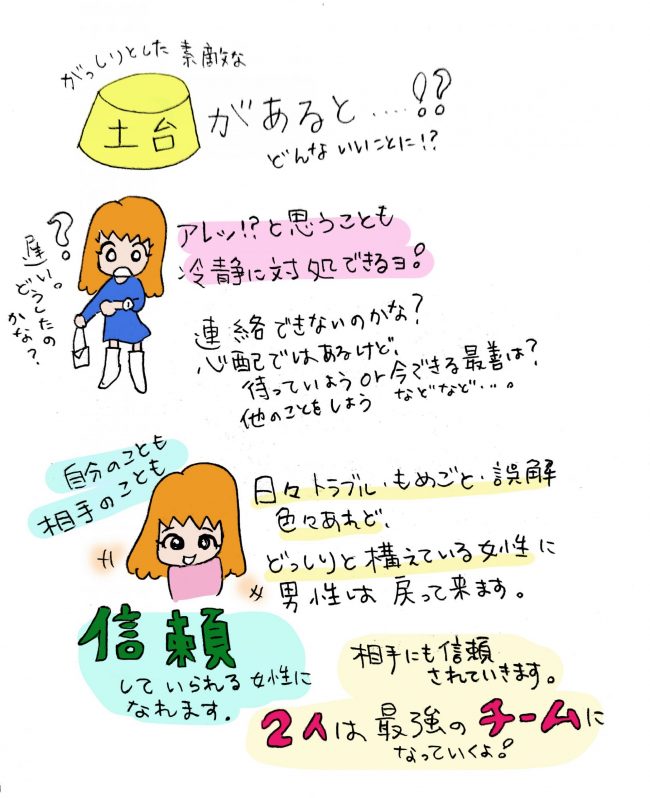 がっしりとした 素敵な
土台 があると....!?
どんな いいことに!?
?
遅い。
どうしたの
かな?
アレッ!?と思うことも
冷静に対処できるヨ!
連絡できないのかな?
心配ではあるけど、
待っていよう or 今できる最善は?
他のことをしよう などなど…。
自分のことも
相手のことも
日々トラブル・もめごと・誤解
色々あれど、
どっしりと構えている女性に
男性は 戻って来ます。
信頼
して いられる 女性に
なれます.
相手にも信頼
されていきます。
2人は最強のチームに
なっていくよ!